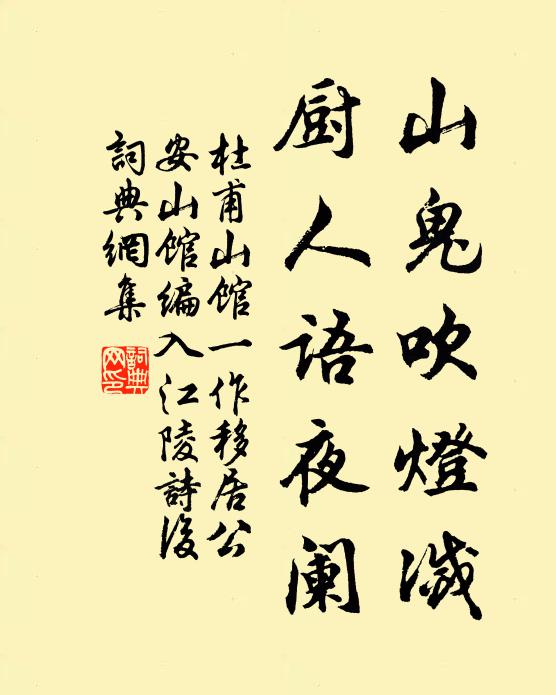 山鬼吹燈滅
厨人语夜阑
杜甫山館一作移居公
安山館编入江陵詩後
詞典網集
詞典網印